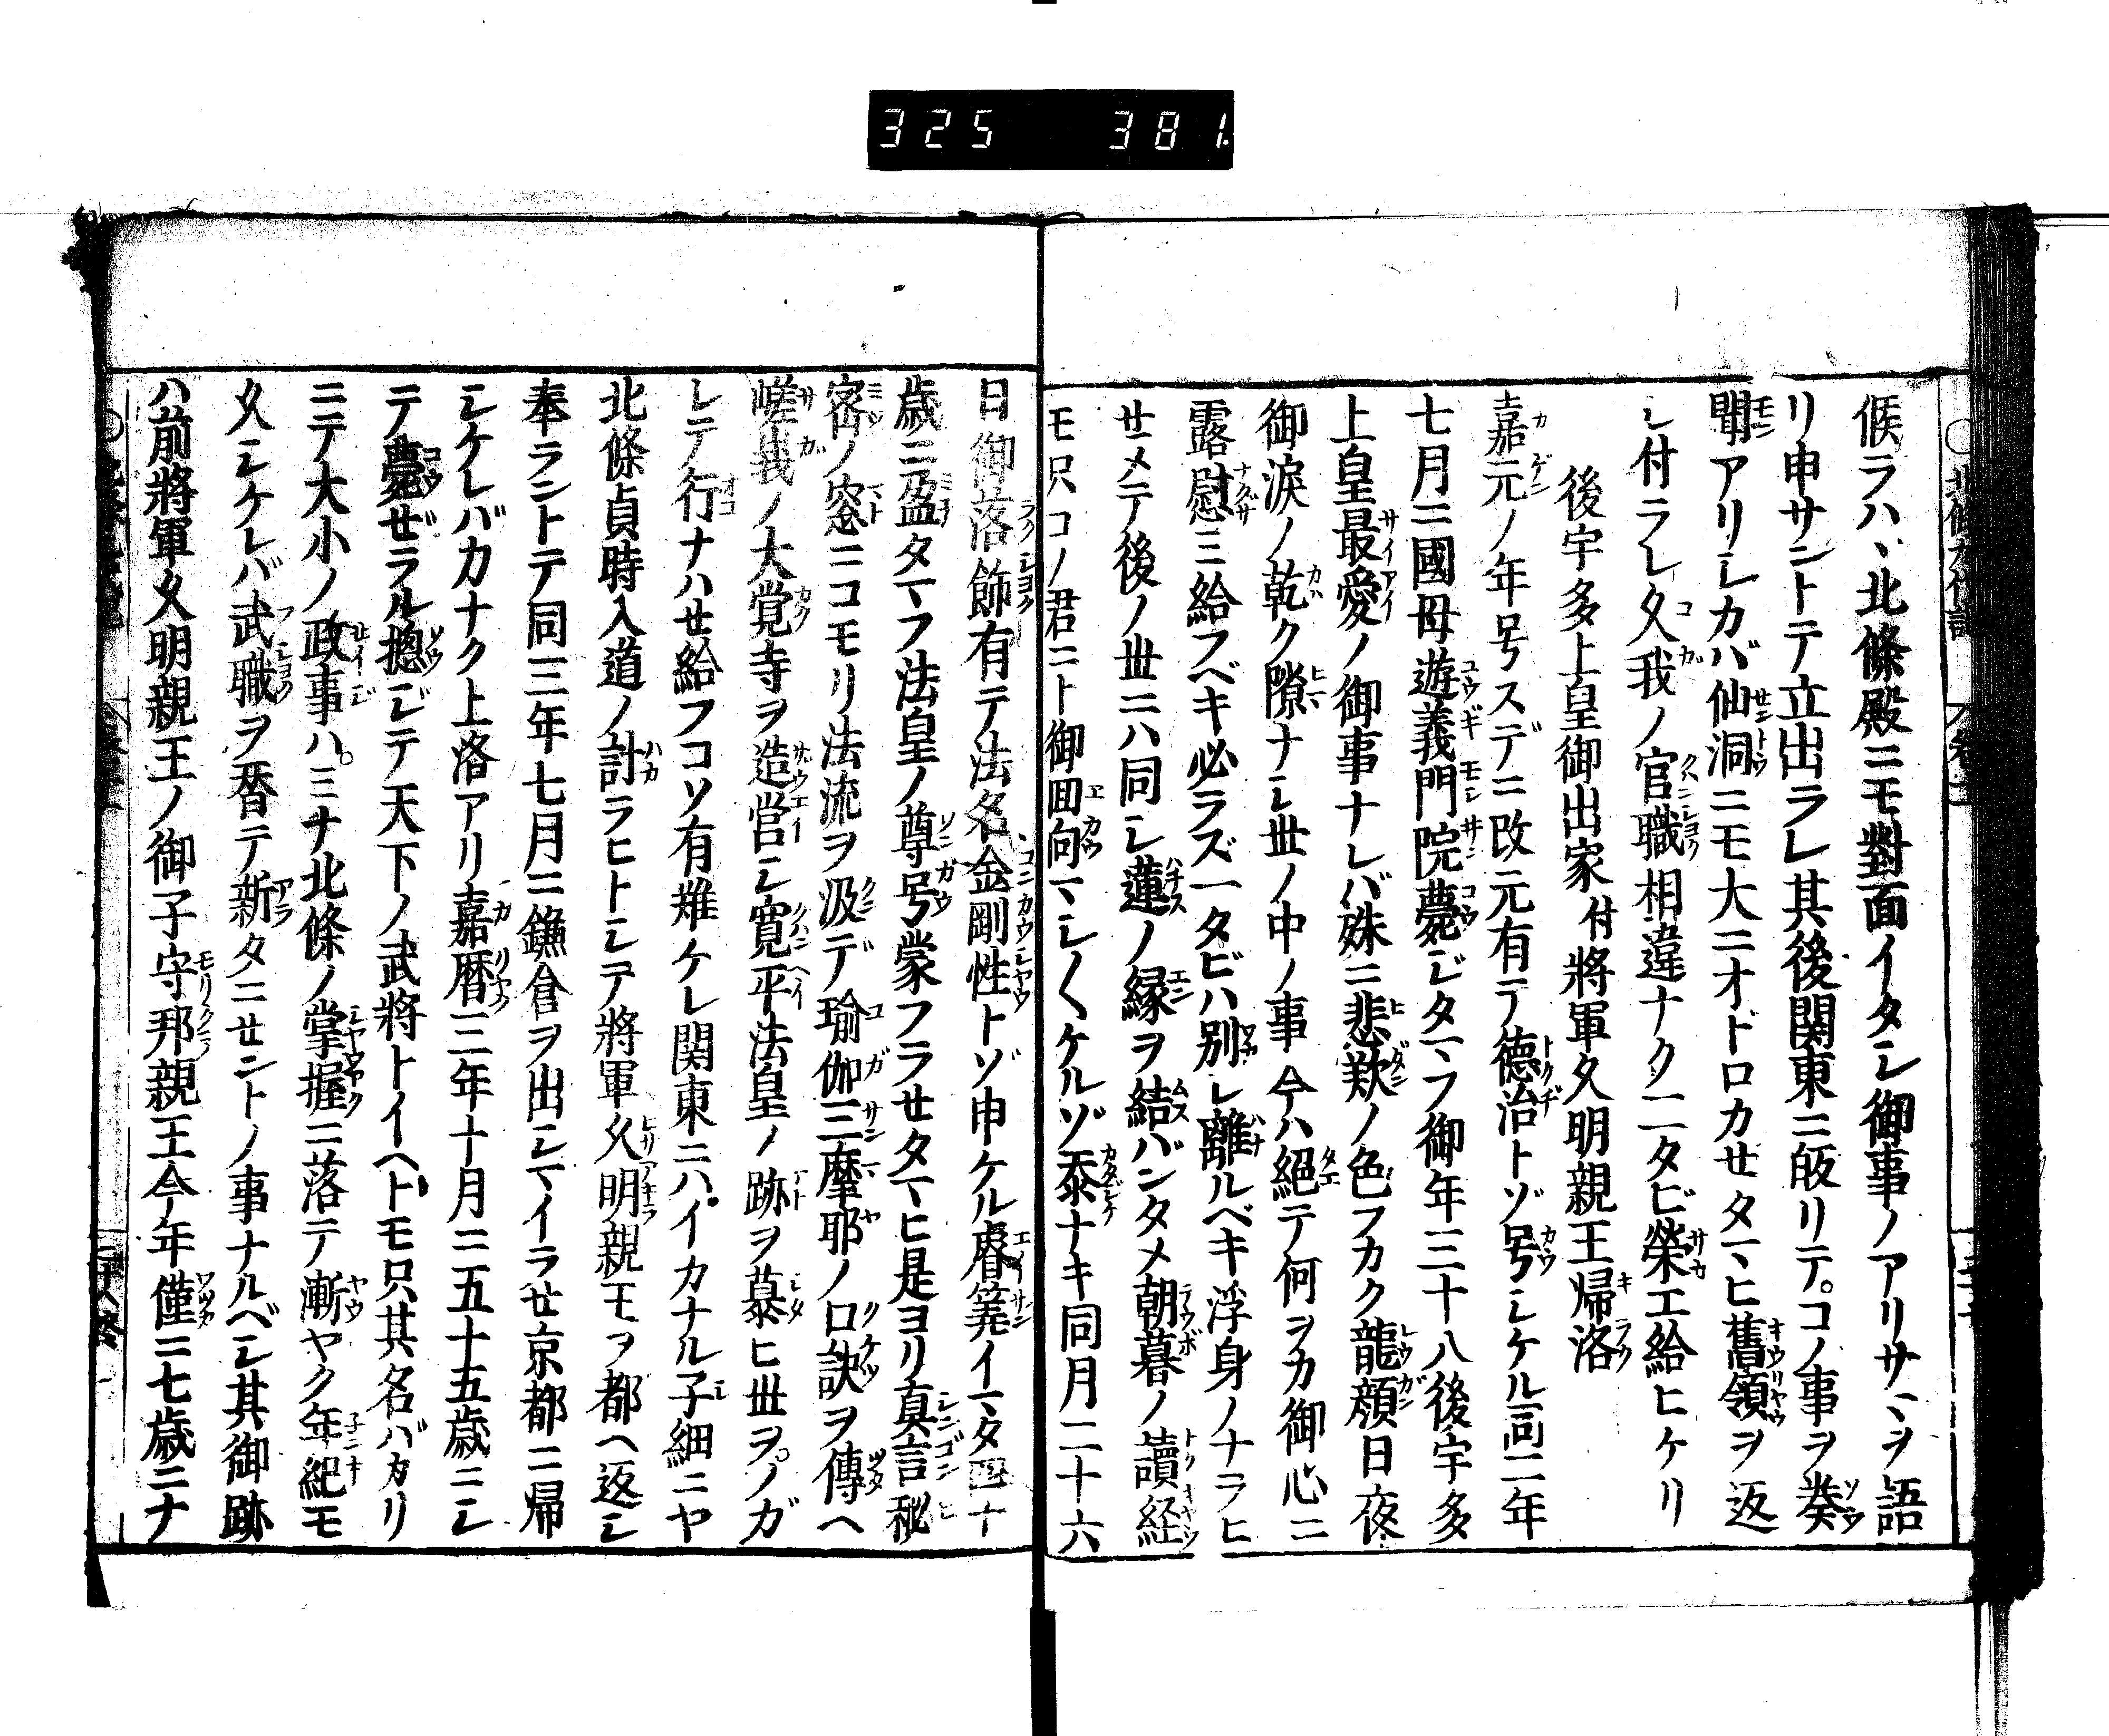 325 381.
候ラハヽ北條殿ニモ對面イタシ御事ノアリサヽヲ語
リ申サントテ立出ラレ其後関東ニ皈リテ。コノ事ヲ奏
聞アリシカバ仙洞ニモ大ニオドロカセタマヒ舊領ヲ返
シ付ラレ久我ノ官職相違ナク二タビ榮エ給ヒケリ
後宇多上皇御出家付將軍久明親王帰洛
嘉元ノ年号スデニ改元有テ德治トゾ号シケル同二年
七月ニ國母遊義門院薨ジタマフ御年三十八後宇多
上皇最愛ノ御事ナレバ殊ニ悲歎ノ色フカク龍顔日夜
御淚ノ乾ク隙ナシ丗ノ中ノ事今ハ絕テ何ヲカ御心ニ
露慰ミ給フベキ必ラズ一タビハ別レ離ルベキ浮身ノナラヒ
サメテ後ノ丗ニハ同シ蓮ノ縁ヲ結バンタメ朝暮ノ讀経
モ只コノ君ニト御囬向マシ〱ケルゾ忝ナキ同月二十六
日御落飾有テ法名金剛性トゾ申ケル睿筭イマタ四十
歳ニ盈タマフ法皇ノ尊号蒙フラセタマヒ是ヨリ真言秘
密ノ窓ニコモリ法流ヲ汲デ瑜伽三摩耶ノ口訣ヲ傳ヘ
嵯峩ノ大覚寺ヲ造営シ寛平法皇ノ跡ヲ慕ヒ丗ヲ。ノガ
レテ行ナハせ給フコソ有難ケレ関東ニハ。イカナル子細ニヤ
北條貞時入道ノ計ラヒトシテ將軍久明親王ヲ都ヘ返シ
奉ラントテ同三年七月ニ鎌倉ヲ出シマイラせ京都ニ帰
シケレバカナク上洛アリ嘉暦三年十月ニ五十五歳ニシ
テ薨ぜラル摠ジテ天下ノ武將トイヘトモ只其名バカリ
ニテ大小ノ政事ハ。ミナ北條ノ掌握ニ落テ漸ヤク年紀モ
久シケレバ武職ヲ替テ新タニせントノ事ナルベシ其御跡
ハ前將軍久明親王ノ御子守邦親王今年僅ニ七歳ニナ